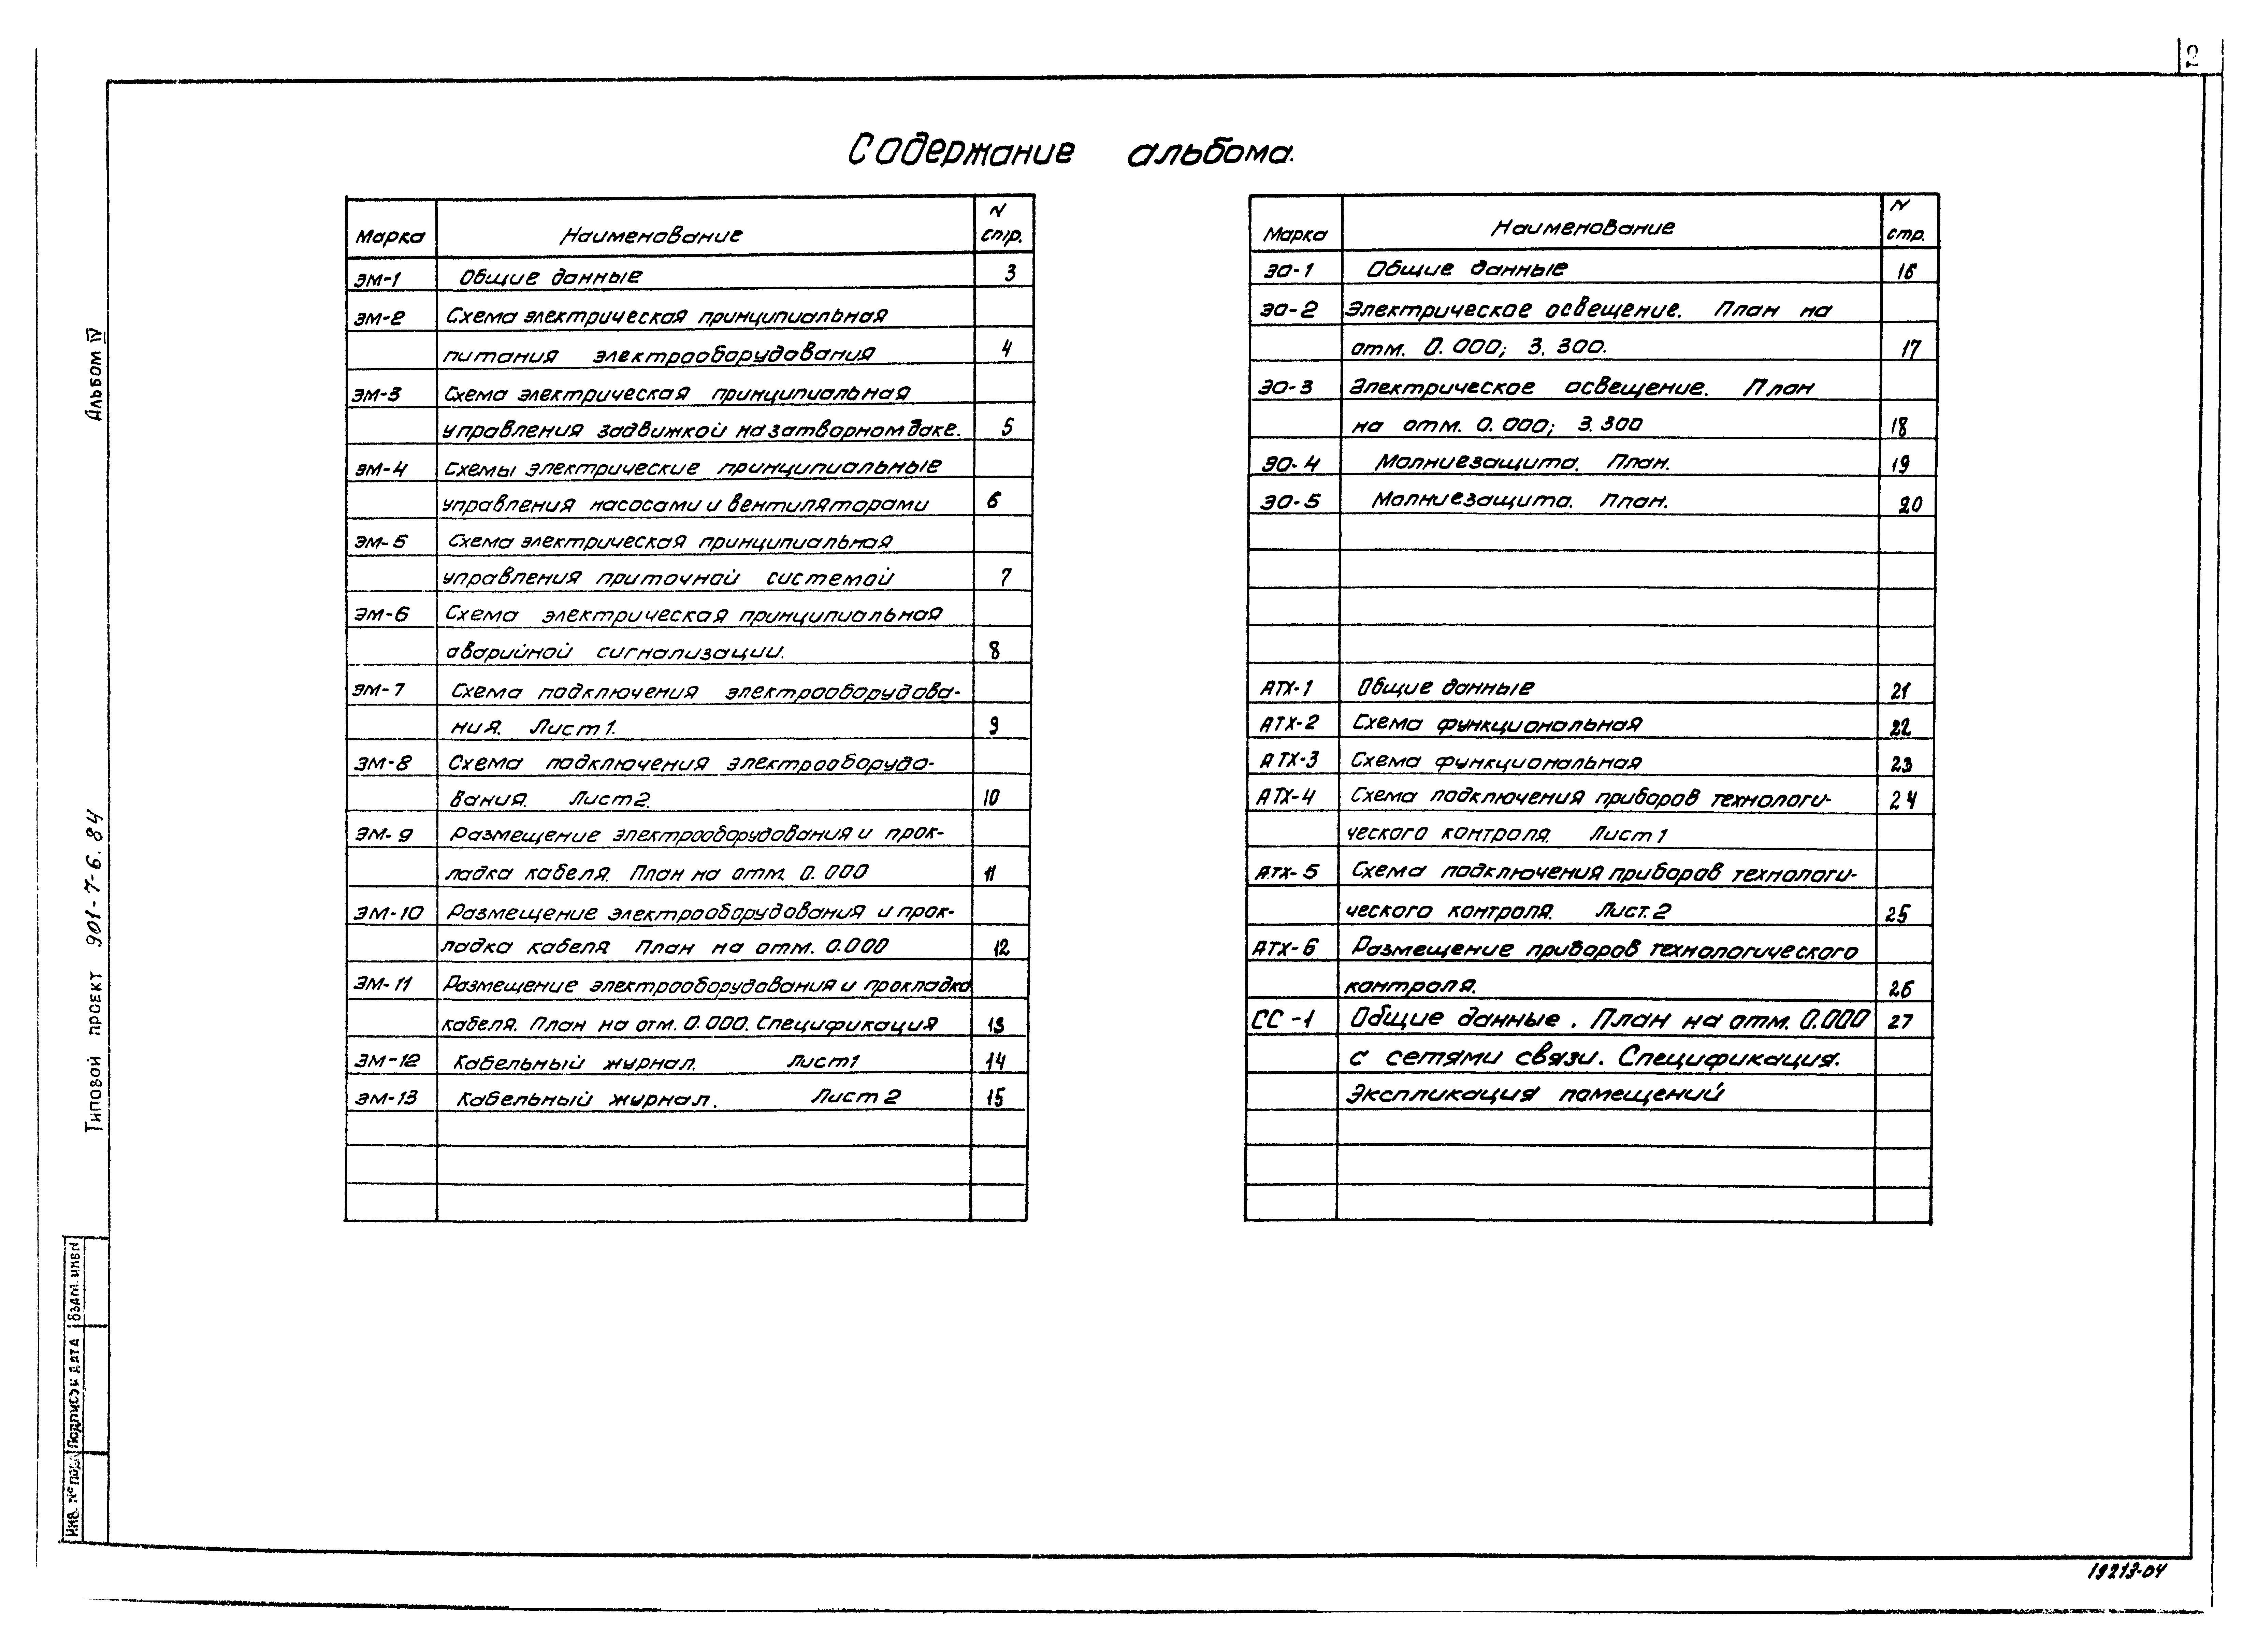 2
Содержание альбома.
Марка Наименование N стр.
ЭМ-1 Общие данные 3
ЭМ-2 Схема электрическая принципиальная
питания электрооборудования 4
ЭМ-3 Схема электрическая принципиальная
управления задвижкой на затворном баке. 5
ЭМ-4 Схемы электрические принципиальные
управления насосами и вентиляторами 6
ЭМ-5 Схема электрическая принципиальная
управления приточной системой 7
ЭМ-6 Схема электрическая принципиальная
аварийной сигнализации. 8
ЭМ-7 Схема подключения электрооборудова-
ния. Лист 1. 9
ЭМ-8 Схема подключения электрооборудо-
вания. Лист 2. 10
ЭМ-9 Размещение электрооборудования и прок-
ладка кабеля. План на отм. 0.000 11
ЭМ-10 Размещение электрооборудования и прок-
ладка кабеля План на отм. 0.000 12
ЭМ-11 Размещение электрооборудования и прокладка
кабеля. План на отм. 0.000. Спецификация 13
ЭМ-12 Кабельный журнал. Лист 1 14
ЭМ-13 Кабельный журнал. Лист 2 15
Марка Наименование N стр.
ЭО-1 Общие данные 16
ЭО-2 Электрическое освещение. План на
отм. 0.000; 3.300. 17
ЭО-3 Электрическое освещение. План
на отм. 0.000; 3.300 18
ЭО-4 Молниезащита. План. 19
ЭО-5 Молниезащита. План. 20
АТХ-1 Общие данные 21
АТХ-2 Схема функциональная 22
АТХ-3 Схема функциональная 23
АТХ-4 Схема подключения приборов технологи- 24
ческого контроля. Лист 1
АТХ-5 Схема подключения приборов технологи-
ческого контроля. Лист. 2 25
АТХ-6 Размещение приборов технологического
контроля. 26
СС-1 Общие данные. План на отм. 0.000 27
с сетями связи. Спецификация.
Экспликация помещений
Альбом IV
Типовой проект 901-7-6.84
Взам. инв N
Подпись и дата
Инв. № подл
19213-04